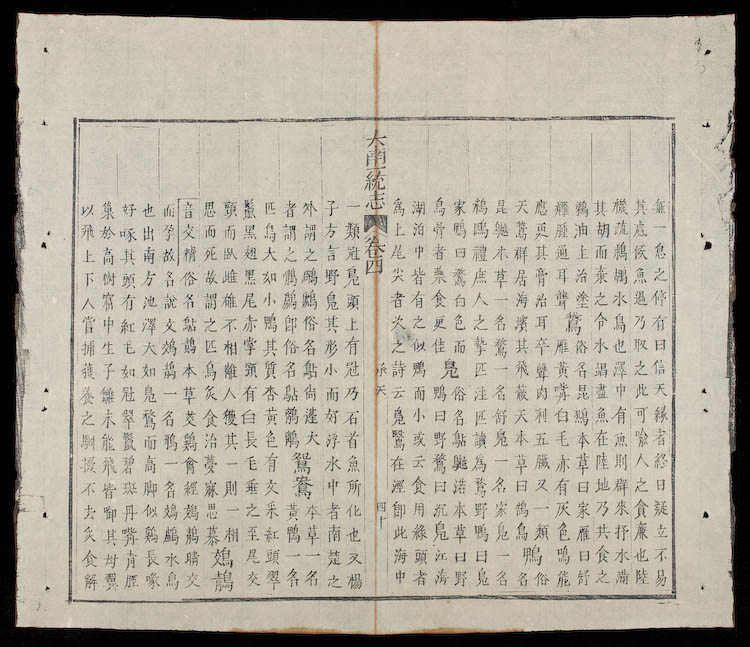 大南一統志 卷四
承天 四十
無一息之停有曰信天緣者終日疑立不易
其處候魚過乃取之此可喻人之貪廉也陸
機疏鵜鶘水鳥也澤中有魚則群來抒水滿
其胡而棄之令水竭盡魚在陸地乃共食之
鵜油主治塗鵞俗名昆本草曰家雁曰舒
癰腫通耳聾雁黃嘴白毛亦有灰色鳴能
應更其膏治耳卒聾肉利五臟又一類鴨俗
天鵞群居海濱其飛蔽天本草曰鶴鳥名
昆本草一名鶩一名舒鳧一名家鳧一名
禮庶人之摯匹注匹讀為鶩野鴨曰鳧
家鴨曰鶩白色而鳧俗名本草曰野
烏骨者藥食更佳鴨曰野鶩曰沉鳧江海
湖泊中皆有之似鴨而小或云食用綠頭者
為上尾尖者次之詩云鳧鷖在涇卽此海中
一類冠鳧頭上有冠乃石首魚所化也又楊
子方言野鳧其形小而好浮水中者南楚之
外謂之鸊鷉俗名尙蓬大鴛鴦本草一名
者謂之鶻鷉卽俗名黃鴨一名
匹鳥大如小鴨其質杏黃色有文采紅頭翠
鬣黑翅黑尾赤掌頭有白長毛垂之至尾交
頸而臥雌雄不相離人獲其一則一相鵁鶄
思而死故謂之匹鳥炙食治夢寐思慕
音交精俗名本草茭鷄禽經鵁鶄睛交
而孕故名說文鵁鶄一名鳽一名鵁鸕水鳥
也出南方池澤大如鳧鶩而高脚似鷄長喙
好啄其頭有紅毛如冠翠鬣碧斑丹嘴靑脛
集於高樹窟中生子雛未能飛皆啣其母翼
以飛上下人嘗捕獲養之馴擾不去炙食解